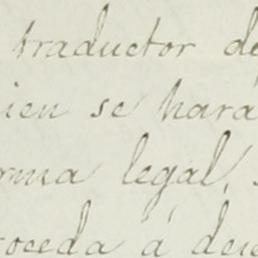 traductor de
ien se hará
rma legal,
roceda á